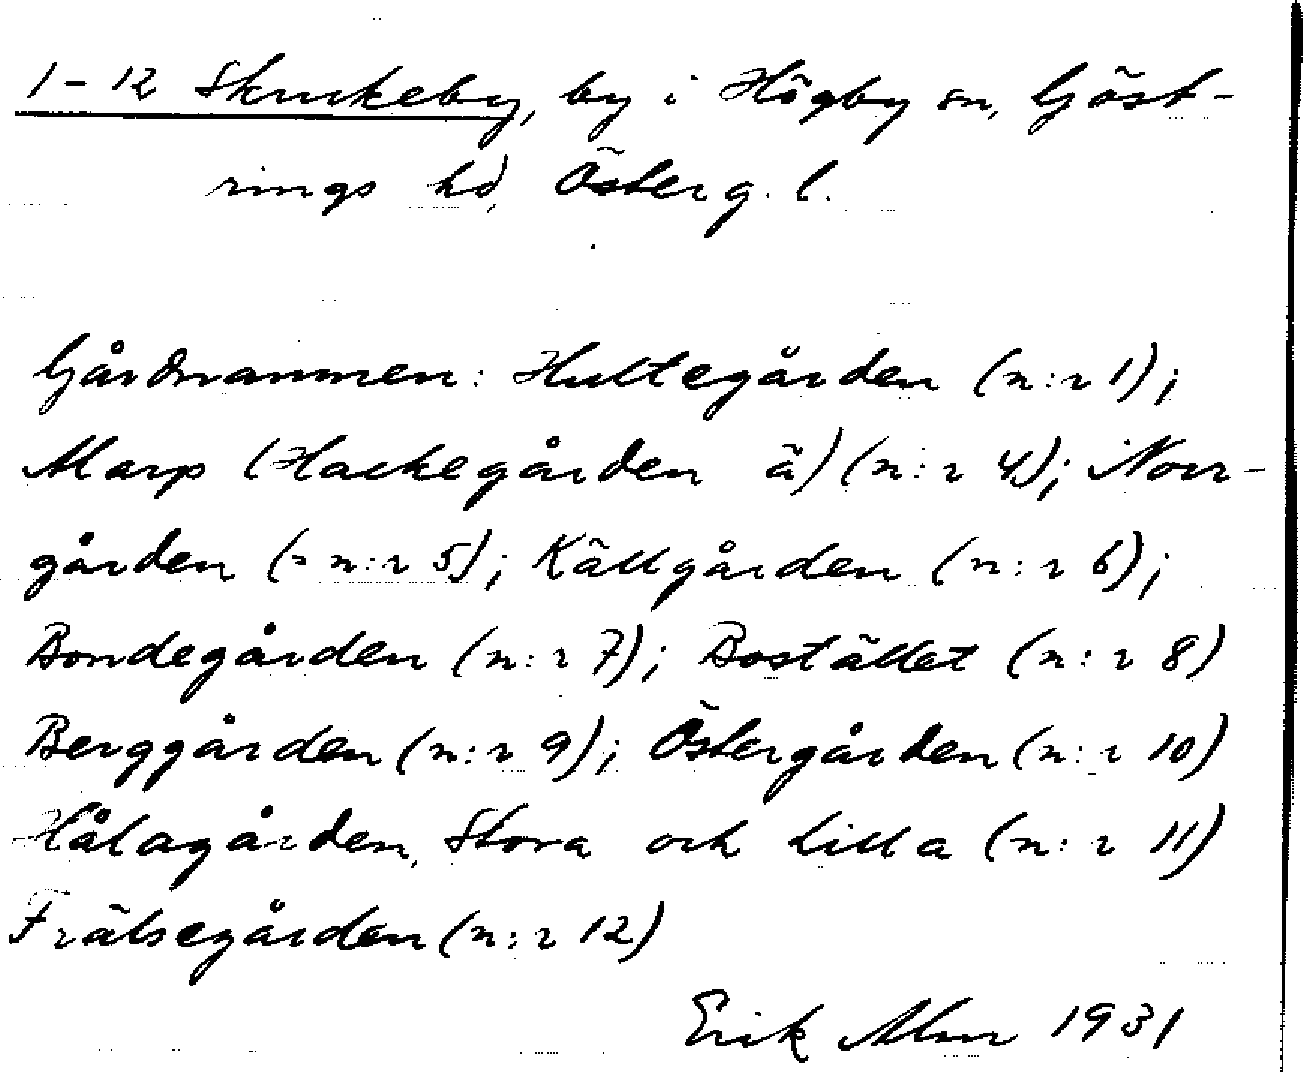 1-12 Skrukeby, by i Högby sn, Göst-
rings hd, Österg. l.
Gårdnamnen: Hultegården (n:r 1);
Marp (Hackegården ä) (n:r 4); Norr-
gården (= n:r 5); Källgården (n:r 6);
Bondegården (n:r 7); Bostället (n:r 8)
Berggården (n:r 9); Östergården (n:r 10)
Hålagården, Stora och Lilla (n:r 11)
Frälsegården (n:r 12)
Erik Alm 1931